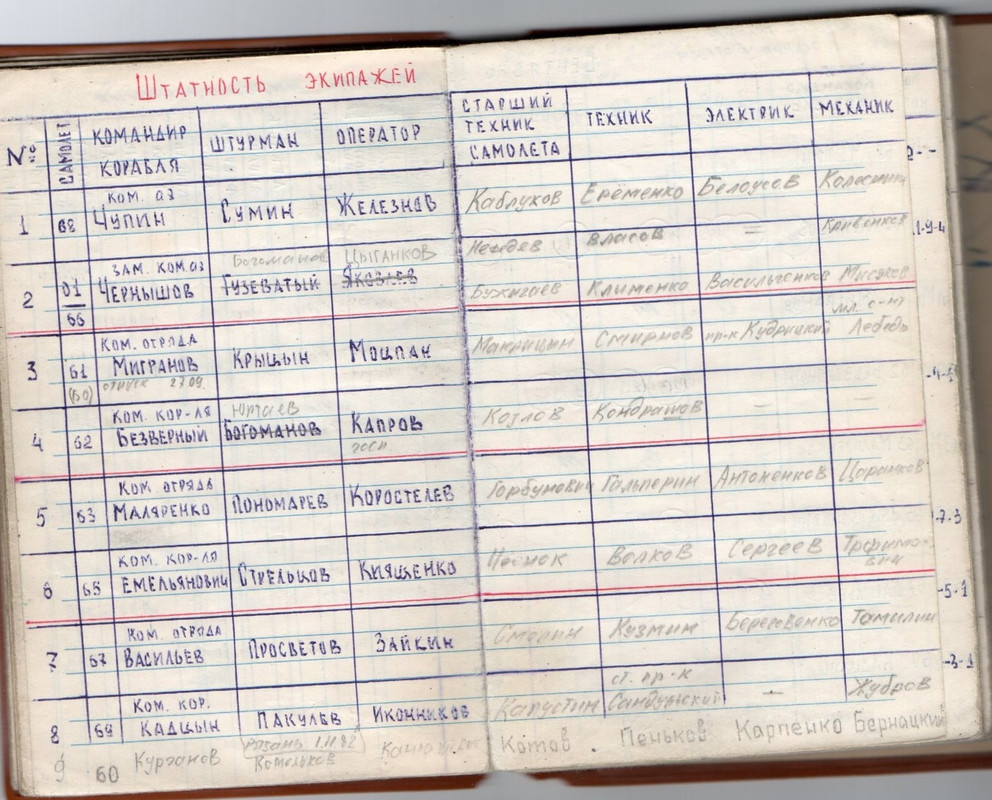 ШТАТНОСТЬ ЭКИПАЖЕЙ
№ САМОЛЕТ КОМАНДИР КОРАБЛЯ ШТУРМАН ОПЕРАТОР СТАРШИЙ ТЕХНИК САМОЛЕТА ТЕХНИК ЭЛЕКТРИК МЕХАНИК
КОМ. АЭ
1 ЧУПИН СУМИН ЖЕЛЕЗНОВ Каблуков Ерёменко Белоусов
ЗАМ. КОМ. АЭ Богоманов ЦЫГАНКОВ Власов = Кривенков
2 01 ЧЕРНЫШОВ ГУЗЕВАТЫЙ ЯКОВЛЕВ Бужигаев Клименко Васильченко
66
КОМ. ОТРЯДА мл. с-нт
3 61 МИГРАНОВ КРЫЦЫН МОЦПАН Макрицын Смирнов пр-к Кудрицкий Лебедь
(60) отпуск 27.09
КОМ. КОР-ЛЯ Ютаев
4 62 БЕЗВЕРНЫЙ БОГОМАНОВ КАПРОВ Козлов Кондрашов – –
госп
КОМ. ОТРЯДА
5 63 МАЛЯРЕНКО ПОНОМАРЕВ КОРОСТЕЛЕВ Горбунович Гальперин Антоненков
КОМ. КОР-ЛЯ
6 65 ЕМЕЛЬЯНОВИЧ СТРЕЛЬЦОВ КИЯЩЕНКО Волков Сергеев Трофимо-
вич
КОМ. ОТРЯДА
7 67 ВАСИЛЬЕВ ПРОСВЕТОВ ЗАЙКИН Кузмин Томилин
КОМ. КОР. ст. пр-к
8 КАДЦЫН ПАКУЛЕВ ИКОННИКОВ Капустин – Жубров
9 60 Курганов Рязань Котельков Котов Пеньков Карпенко Бернацкий
1-9-4
-7-3
-5-1
-3-1